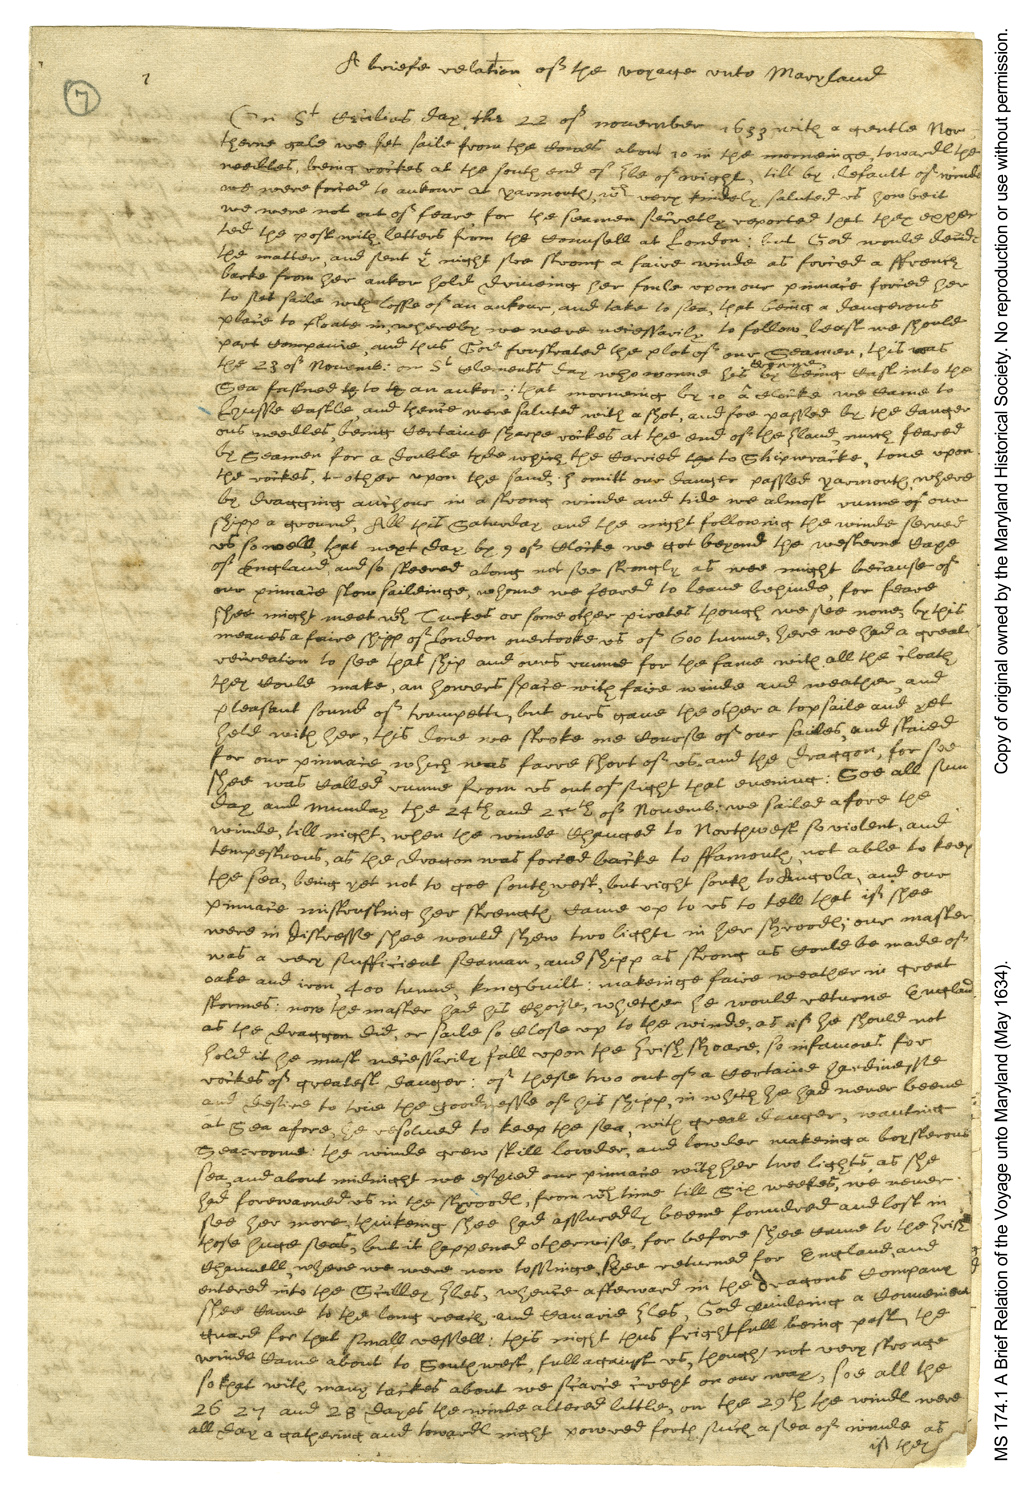 7
A briefe relation of the voyage vnto Maryland
On St Cecilies day, the 22 of november 1633 with a gentle Nor-
therne gale we set saile from the Cowes about 10 in the morninge, toward the
needles, being rockes at the south end of Ile of wight, till by default of winde
we were forced to ankour at yarmouth, wch very kindely saluted vs howbeit
we were not out of feare for the seamen secretly reported that they expec
ted the post with letters from the Counsell at London: but God would
the matter, and sent yt night soe strong a faire winde as forced a ffrench
barke from her ankor hold driveing her foule vpon our pinnace forced her
to set saile with losse of an ankour, and take to sea, that being a dangerous
place to floate in, whereby we were necessarily to follow, least we should
part companie, and thus God frustrated the plot of our Seamen, this was
the 23 of Novemb: on St Clements day who wonne his crowne by being cast into the
Sea fastned to an ankor; that morneing by 10 a clocke we came to
castle, and thence were saluted with a shot, and soe passed by the danger
ous needles, being certaine sharpe rockes at the end of the Iland, much feared
by Seamen for a double tide which the carried to Shipwracke, tone vpon
the rockes, t other vpon the sand, I omitt our danger passed yarmouth, where
by dragging anchour in a strong winde and tide we almost runne of our
shipp a ground, All this Saturday and the night following the winde served
vs so well, that next day by 9 of clocke we got beyond the westerne cape
of England, and so steered along not soe strongly as wee might because of
our pinnace slow saileinge, whome we feared to leave behinde, for feare
shee might meet wth Turkes or some other pirates though we see none, by this
meanes a faire shipp of London overtooke vs of 600 tunne, here we had a great
recreation to see that ship and ours runne for the fame with all the cloath
they could make, an howers space with faire winde and weather, and
pleasant sound of trumpetts, but ours gave the other a topsaile and yet
held with her, this done we stroke one course of our sailes, and staied
for our pinnace, which was farre short of vs, and the draggon, for soe
shee was called runne from vs out of sight that evening: Soe all sun
day and munday the 24th and 25th of Novemb: we sailed afore the
winde, till night, when the winde changed to Northwest so violent, and
tempestuous, as the dragon was forced backe to ffamouth, not able to keep
the sea, being yet not to goe southwest, but right south to Angola, and our
pinnace mistrusting her strength, came vp to vs to tell that if shee
were in distresse shee would shew two lights in her shroodes; our master
was a very sufficient seaman, and shipp as strong as could be made of
oake and iron, 400 tunne, kingbuilt: makeinge faire weather in great
stormes: now the master had his choise, whether he would returne England
as the draggon did, or saile so close vp to the winde, as if he should not
hold it he must necessarily fall vpon the Irish shoare, so infamous for
rockes of greatest danger: of these two out of a certaine hardinesse
and desire to trie the goodnesse of his shipp, in which he had never beene
at Sea afore, he resolved to keep the sea, with great danger, wanting
Searoome: the winde grew still lowder, and lowder makeing a boysterous
sea, and about midnight we espied our pinnace with her two lights, as she
had forewarned vs in the shroods, from wch time till Six weekes, we never
see her more, thinkeing shee had assuredly beene foundred and lost in
those huge seas, but it happened otherwise, for before shee came to the Irish
channell, where we were now tossinge, shee returned for England, and
entered into the Scilley Iles, whence afterward in the dragons company
shee came to the long reach and canarie Iles, God guideing a convenient
guard for that small vessell: this night thus frightfull being past, the
winde came about to Southwest, full against vs, though not very stronge
so that with many tackes about we scarce crept on our way, soe all the
26 27 and 28 dayes the winde altered little, on the 29th the windes were
all day a gathering and toward night powered forth such a sea of winde as
if they
MS 174.1 A Brief Relation of the Voyage unto Maryland (May 1634). Copy of original owned by the Maryland Historical Society. No reproduction or use without permission.